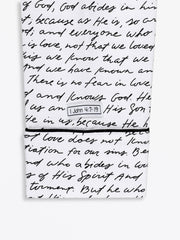 g God, God abides in him
t, because as He is, so an
r, and everyone who
is love, not that we loved
us we know that we
d we have known an
There is no fear in love,
d and knows God H
us an His Son
I John 4:7-19
He in us, because He
at love does not know
iation for our sins Be
nd who abides in lo
s of His Spirit And
torment But he who